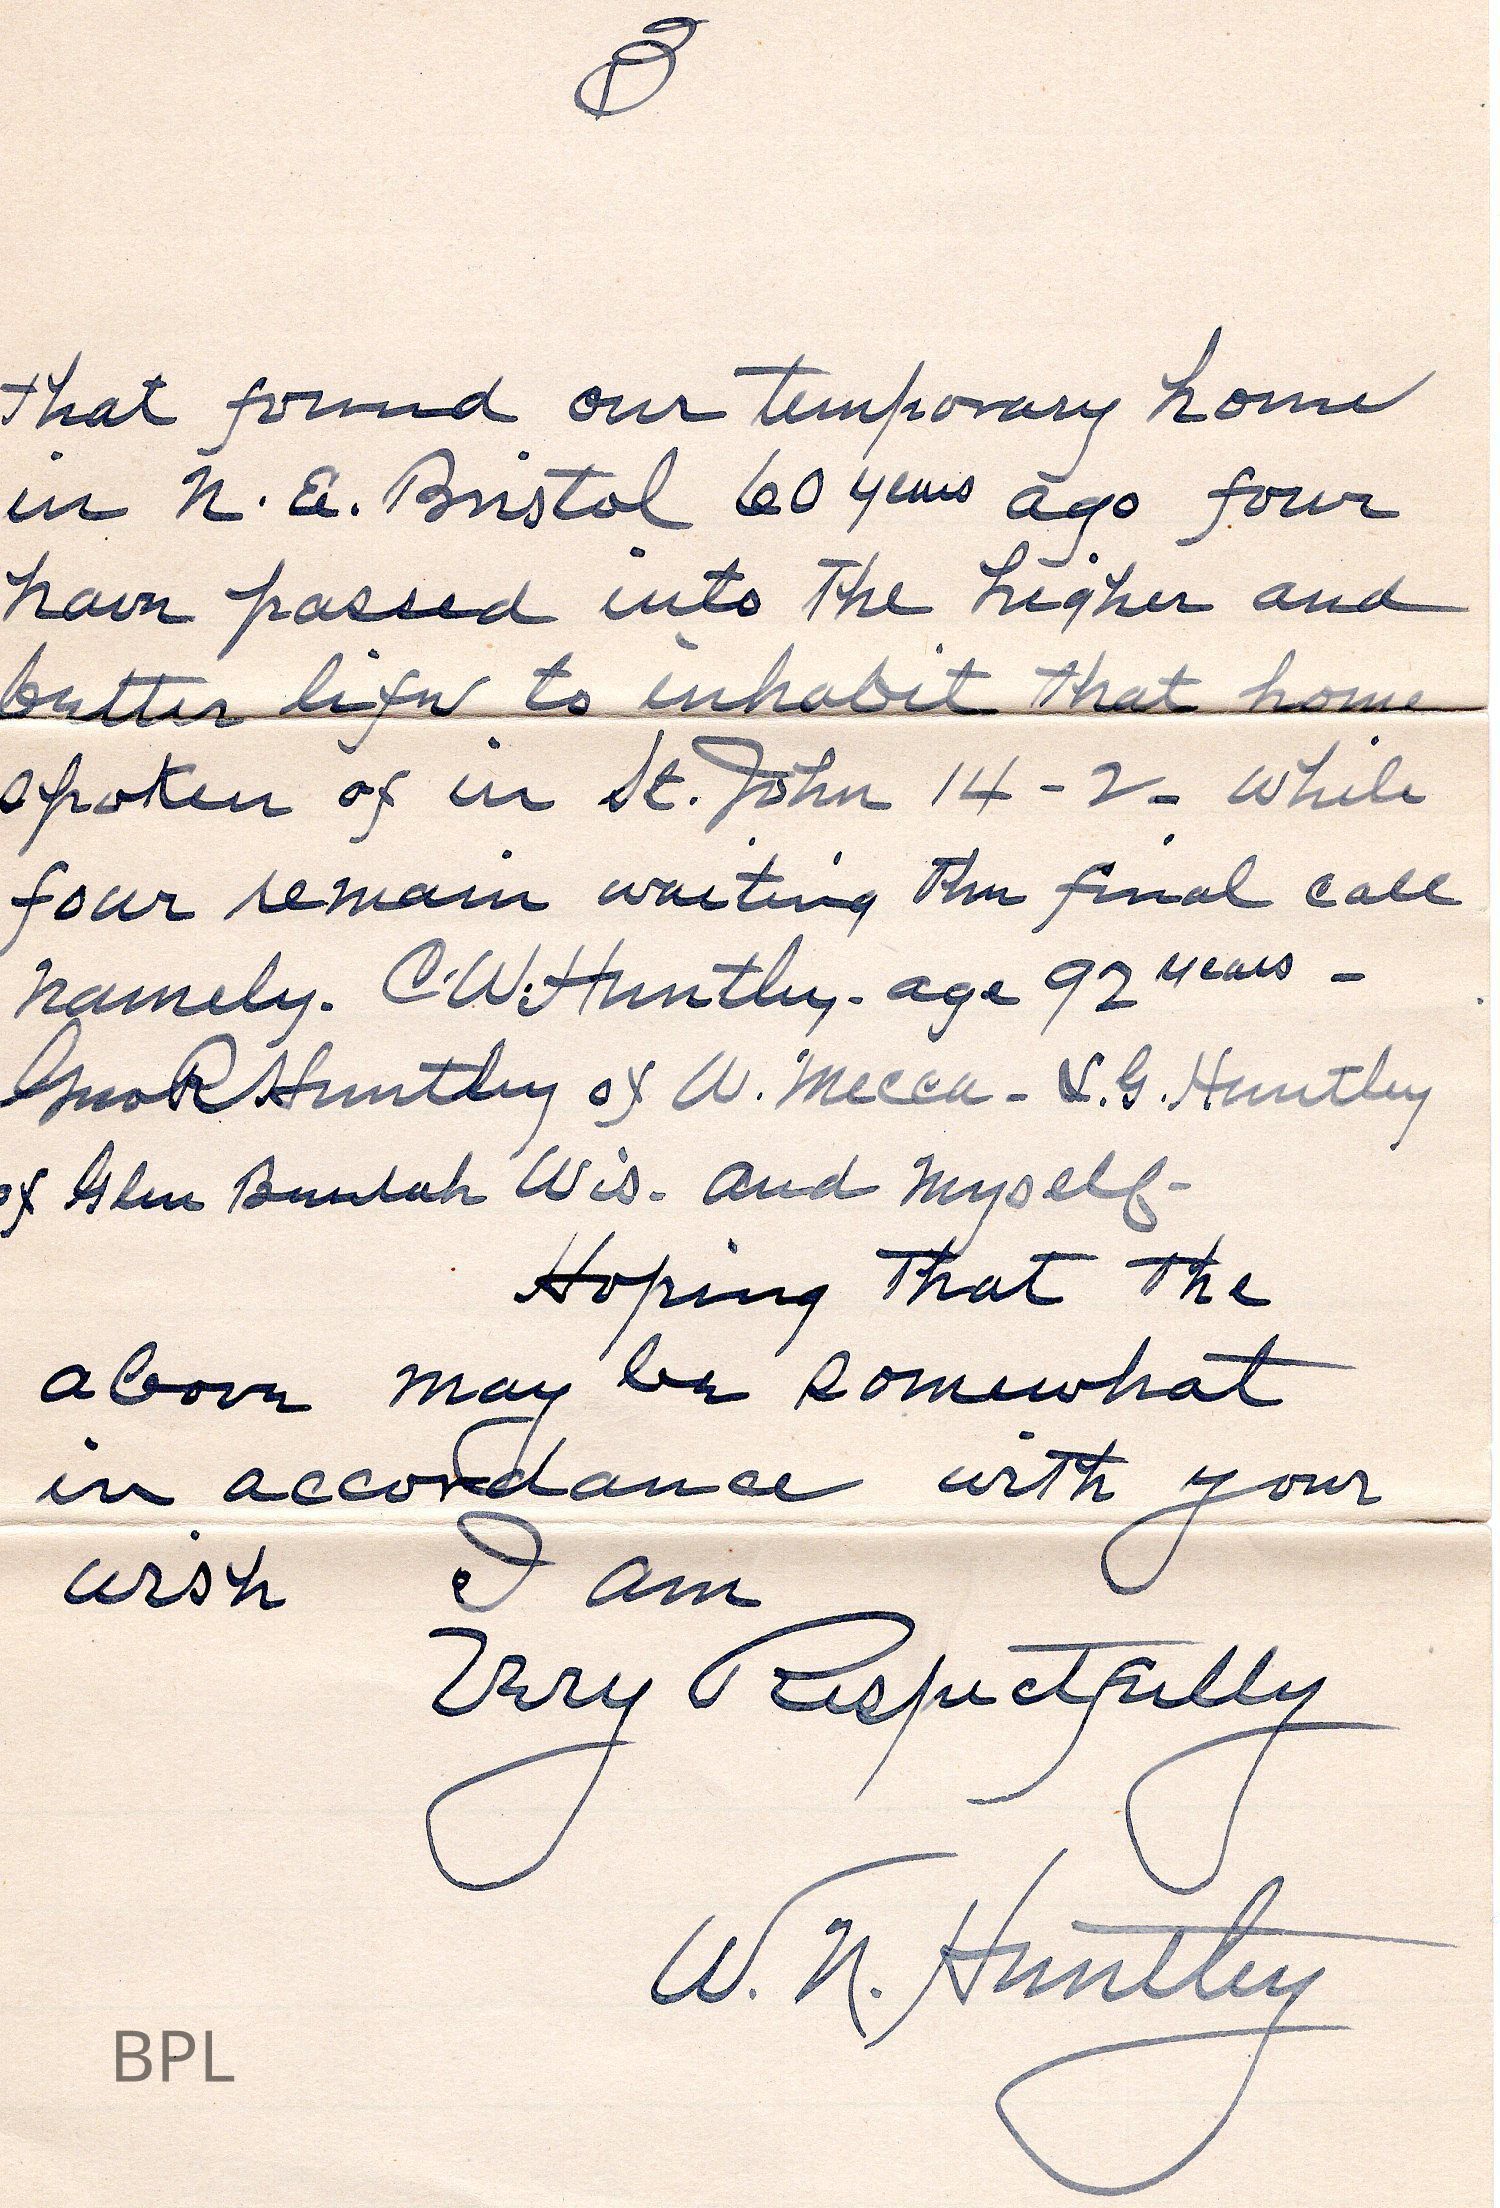 3
that found our temporary home
in N. E. Bristol 60 years ago four
have passed into the higher and
better life to inhabit that home
spoken of in St. John 14-2- while
four remain waiting the final call
namely. C.W. Huntley- age 92 years -
Geo R Huntley of W. Mecca - S.G. Huntley
of Glen Beulah Wis. and myself-
Hoping that the
above may be somewhat
in accordance with your
wish I am
Very Respectfully
W. N. Huntley
BPL